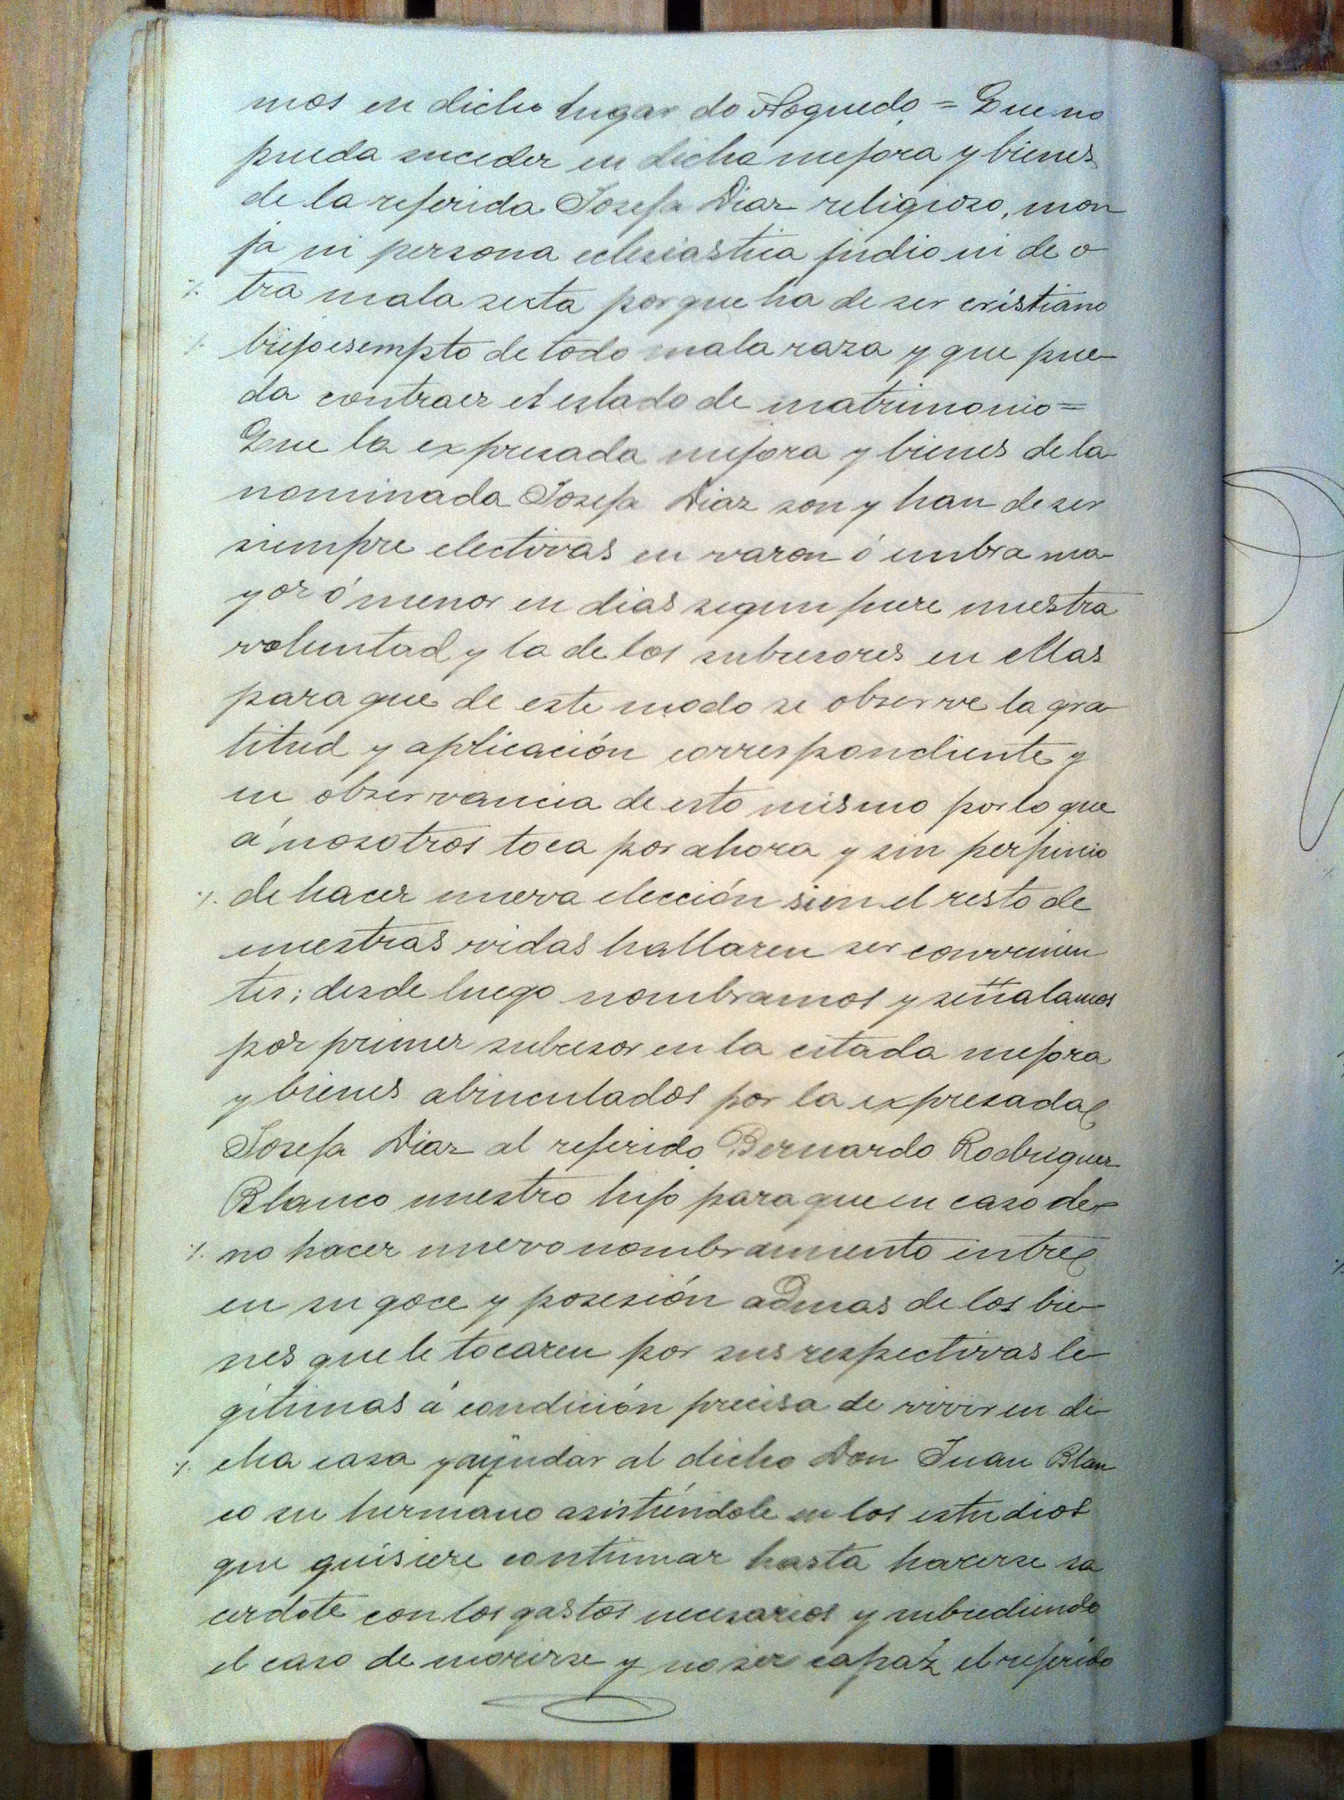 mos en dicho lugar do Noguedo = Que no
pueda suceder en dicha mejora y bienes
de la referida Josefa Diaz religioso, mon
ja ni persona eclesiastica judio ni de o
tra mala secta porque ha de ser cristiano
biejo esempto de todo mala raza y que pue
da contraer el estado de matrimonio =
Que la expresada mejora y bienes de la
nominada Josefa Diaz son y han de ser
siempre electivas en varon ó embra ma
yor ó menor en dias segun fuere nuestra
voluntad y la de los subcesores en ellas
para que de este modo se observe la gra
titud y aplicación correspondiente y
en observancia de esto mismo por lo que
á nosotros toca por ahora y sin perjuicio
de hacer nueva elección si en el resto de
nuestras vidas hallaren ser convenien
tes; desde luego nombramos y señalamos
por primer subcesor en la citada mejora
y bienes abinculados por la expresada
Josefa Diaz al referido Bernardo Rodriguez
Blanco nuestro hijo para que en caso de
no hacer nuevo nombramiento entre
en su goce y posesión ademas de los bie
nes que le tocaren por sus respectivas le
gítimas á condición precisa de vivir en di
cha casa y ayudar al dicho Don Juan Blan
co su hermano asistiéndole en los estudios
que quisiere continuar hasta hacerse sa
cerdote con los gastos necesarios y subcediendo
el caso de morirse y no ser capaz el referido